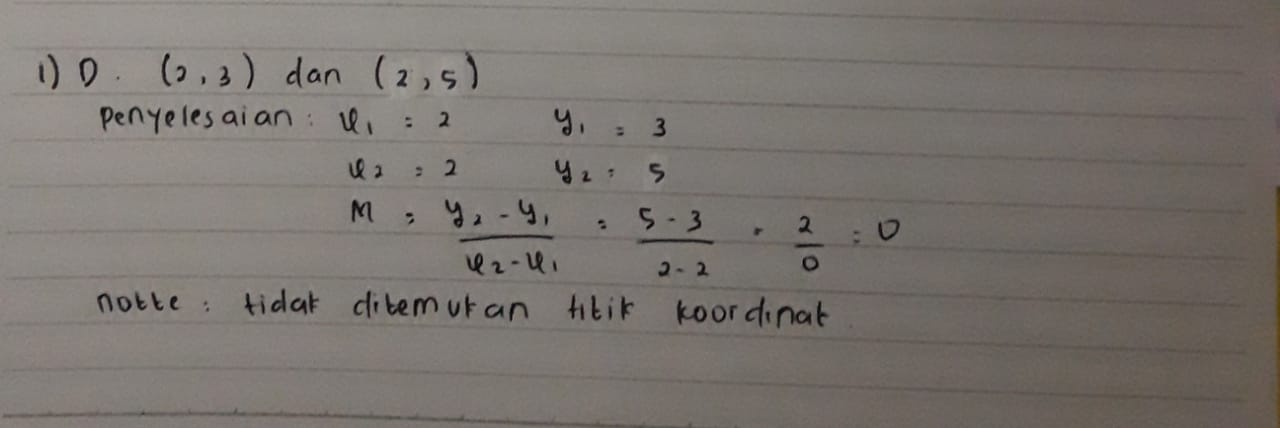 1) D. (2,3) dan (2,5)
Penyelesaian : x₁ = 2 y₁ = 3
x₂ = 2 y₂ = 5
M = y₂-y₁/x₂-x₁ = 5-3/2-2 = 2/0 = 0
notte : tidak ditemukan titik koordinat.